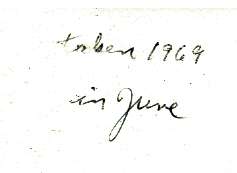 taken 1969
in June